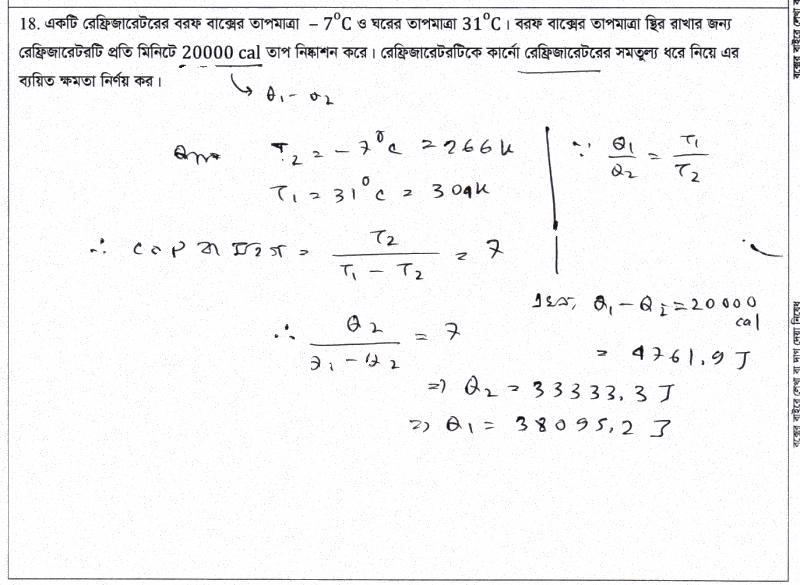 18. একটি রেফ্রিজারেটরের বরফ বাক্সের তাপমাত্রা – 7⁰C ও ঘরের তাপমাত্রা 31⁰C। বরফ বাক্সের তাপমাত্রা স্থির রাখার জন্য
রেফ্রিজারেটরটি প্রতি মিনিটে 20000 cal তাপ নিষ্কাশন করে। রেফ্রিজারেটরটিকে কার্নো রেফ্রিজারেটরের সমতুল্য ধরে নিয়ে এর
ব্যয়িত ক্ষমতা নির্ণয় কর।
→ Q₁ - Q₂
T₂ = - 7⁰C = 266K
T₁ = 31⁰C = 304K
∵ Q₁/Q₂ = T₁/T₂
∴ COP = T₂/(T₁ - T₂) = 7
∴ Q₂/(Q₁ - Q₂) = 7
Q₁ - Q₂ = 20000 cal
= 4761.9 J
⇒ Q₂ = 33333.3 J
⇒ Q₁ = 38095.2 J
বক্সের বাইরে লেখা বা দাগ দেয়া নিষেধ